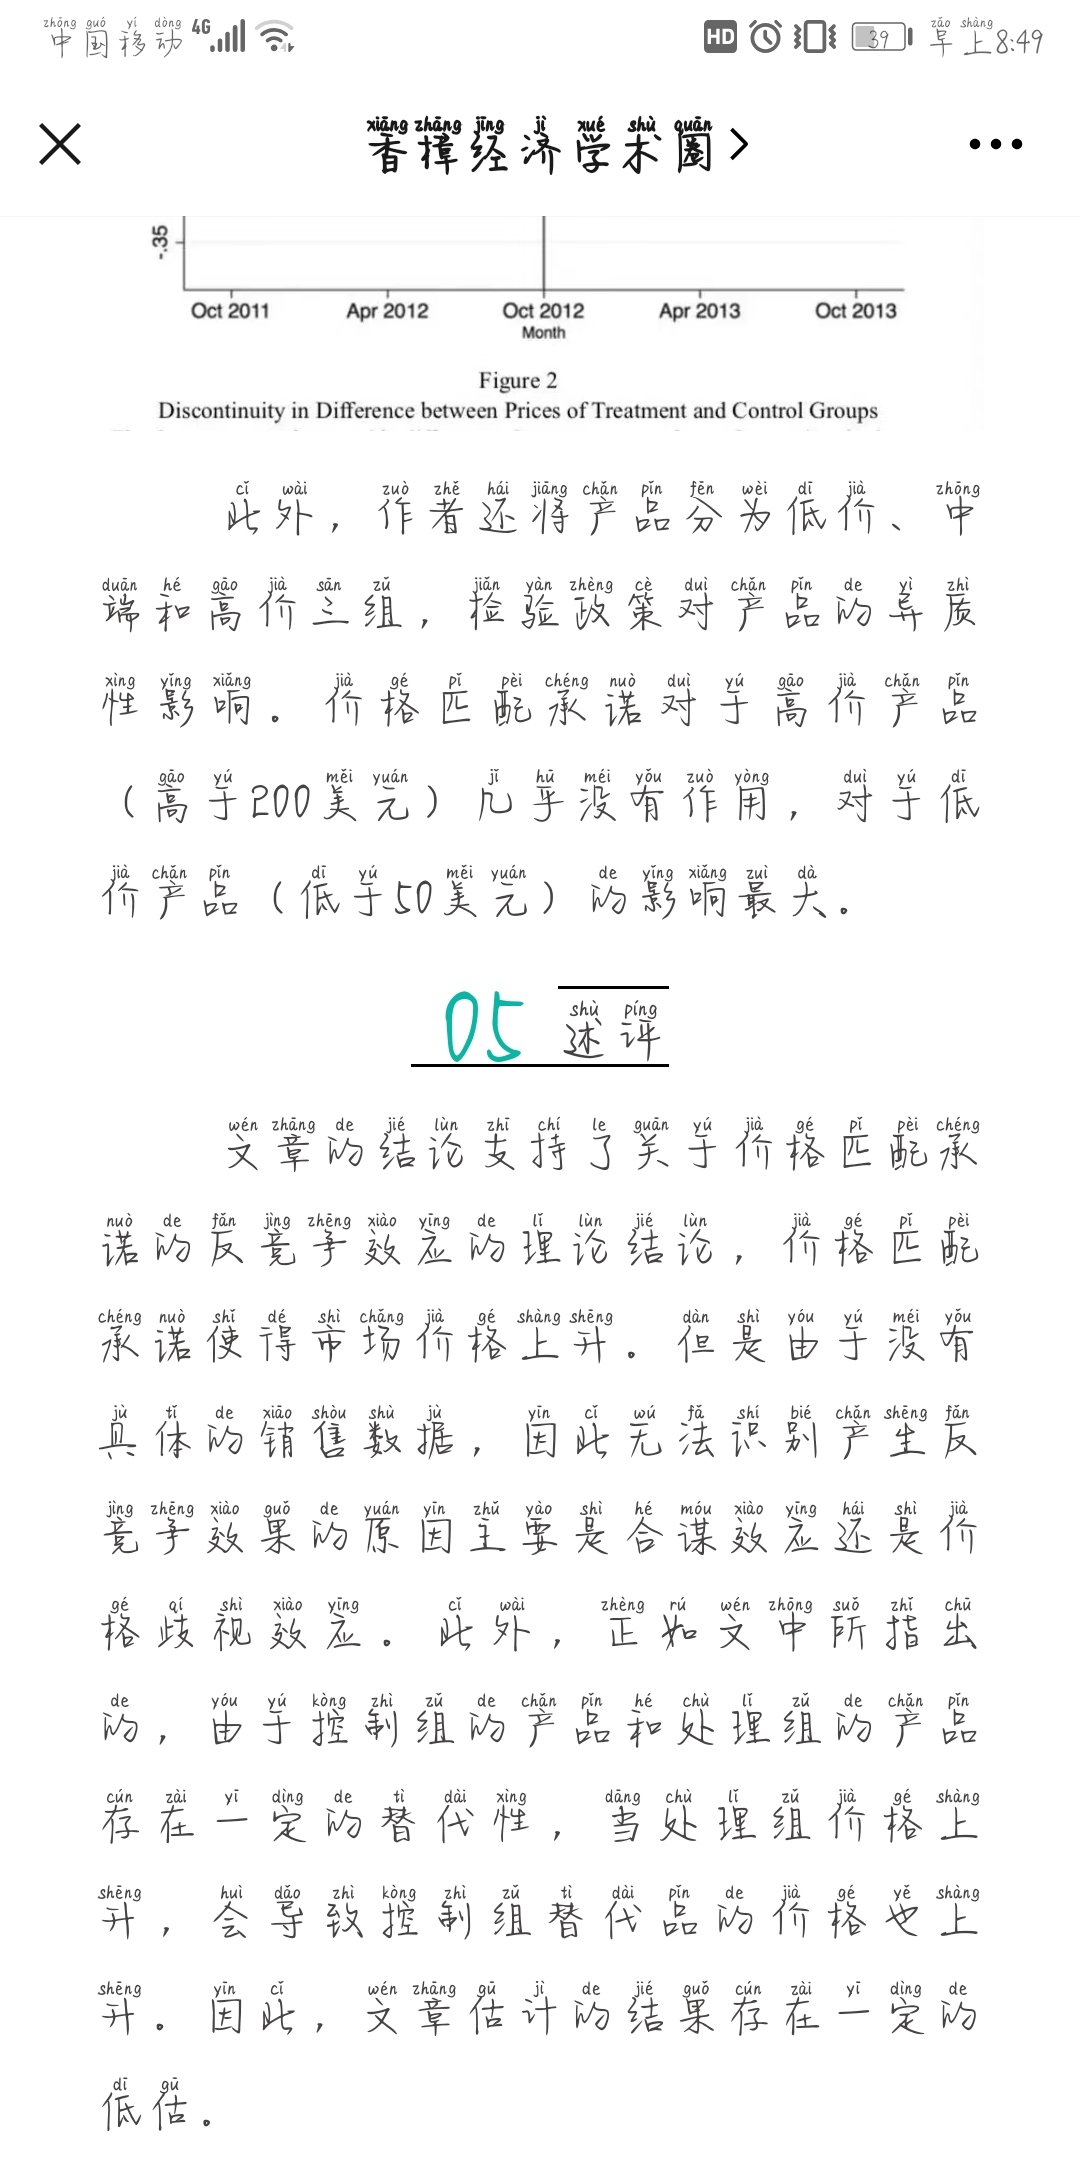 中国移动 4G HD 39 早上8:49
香樟经济学术圈
-.35
Oct 2011 Apr 2012 Oct 2012 Apr 2013 Oct 2013
Month
Figure 2
Discontinuity in Difference between Prices of Treatment and Control Groups
此外，作者还将产品分为低价、中
端和高价三组，检验政策对产品的异质
性影响。价格匹配承诺对于高价产品
（高于200美元）几乎没有作用，对于低
价产品（低于50美元）的影响最大。
05 述评
文章的结论支持了关于价格匹配承
诺的反竞争效应的理论结论，价格匹配
承诺使得市场价格上升。但是由于没有
具体的销售数据，因此无法识别产生反
竞争效果的原因主要是合谋效应还是价
格歧视效应。此外，正如文中所指出
的，由于控制组的产品和处理组的产品
存在一定的替代性，当处理组价格上
升，会导致控制组替代品的价格也上
升。因此，文章估计的结果存在一定的
低估。